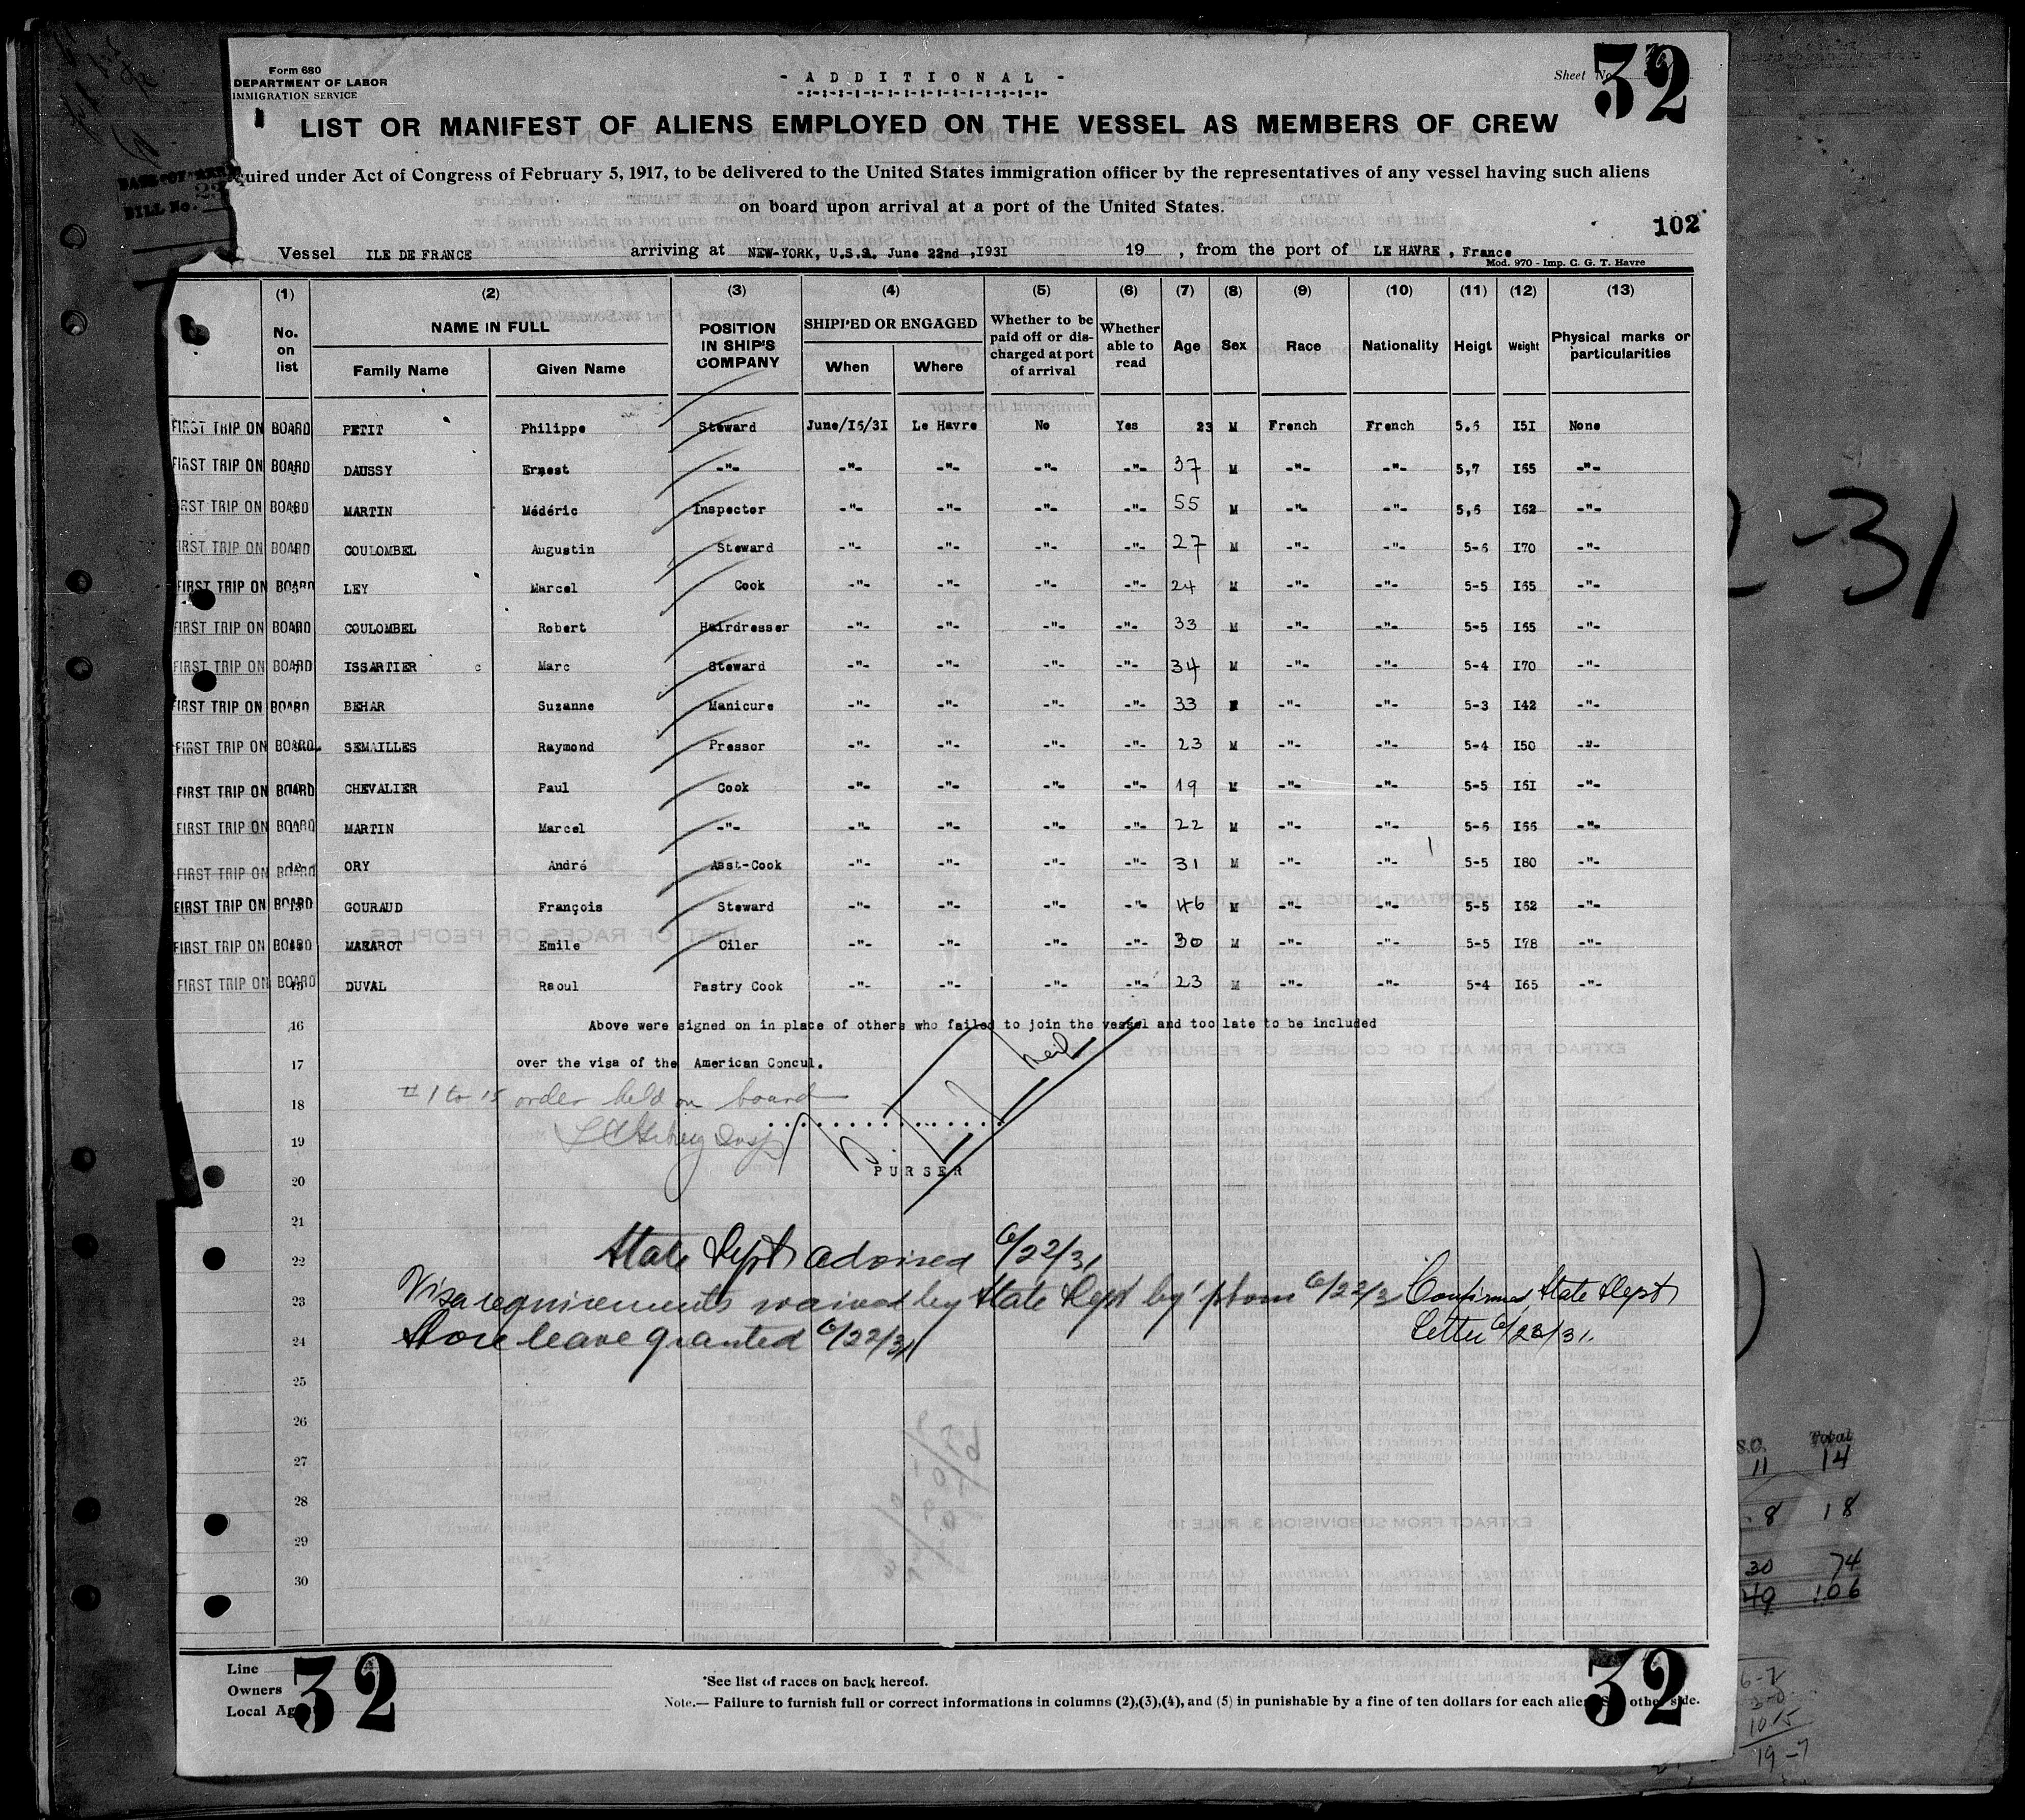 Form 680
DEPARTMENT OF LABOR
IMMIGRATION SERVICE
- A D D I T I O N A L -
Sheet No.
32
LIST OR MANIFEST OF ALIENS EMPLOYED ON THE VESSEL AS MEMBERS OF CREW
quired under Act of Congress of February 5, 1917, to be delivered to the United States immigration officer by the representatives of any vessel having such aliens
on board upon arrival at a port of the United States.
BILL No.
102
Vessel ILE DE FRANCE arriving at NEW-YORK, U.S.A. June 22nd ,1931 19 , from the port of LE HAVRE , France
Mod. 970 - Imp. C. G. T. Havre
(1) (2) (3) (4) (5) (6) (7) (8) (9) (10) (11) (12) (13)
No. on list NAME IN FULL Family Name Given Name POSITION IN SHIP'S COMPANY SHIPPED OR ENGAGED When Where Whether to be paid off or discharged at port of arrival Whether able to read Age Sex Race Nationality Heigt Weight Physical marks or particularities
FIRST TRIP ON BOARD PETIT Philippe Steward June/15/31 Le Havre No Yes 23 M French French 5.6 151 None
FIRST TRIP ON BOARD DAUSSY Ernest -"- -"- -"- -"- -"- 37 M -"- -"- 5,7 165 -"-
FIRST TRIP ON BOARD MARTIN Médéric Inspector -"- -"- -"- -"- 55 M -"- -"- 5,6 162 -"-
FIRST TRIP ON BOARD COULOMBEL Augustin Steward -"- -"- -"- -"- 27 M -"- -"- 5-6 170 -"-
FIRST TRIP ON BOARD LEY Marcel Cook -"- -"- -"- -"- 24 M -"- -"- 5-5 165 -"-
FIRST TRIP ON BOARD COULOMBEL Robert Hairdresser -"- -"- -"- -"- 33 M -"- -"- 5-5 165 -"-
FIRST TRIP ON BOARD ISSARTIER Marc Steward -"- -"- -"- -"- 34 M -"- -"- 5-4 170 -"-
FIRST TRIP ON BOARD BEHAR Suzanne Manicure -"- -"- -"- -"- 33 -"- -"- 5-3 142 -"-
FIRST TRIP ON BOARD SEMAILLES Raymond Presser -"- -"- -"- -"- 23 M -"- -"- 5-4 150 -"-
FIRST TRIP ON BOARD CHEVALIER Paul Cook -"- -"- -"- -"- 19 M -"- -"- 5-5 151 -"-
FIRST TRIP ON BOARD MARTIN Marcel -"- -"- -"- -"- -"- 22 M -"- -"- 5-6 166 -"-
FIRST TRIP ON BOARD 12 ORY André Asst-Cook -"- -"- -"- -"- 31 M -"- -"- 5-5 180 -"-
FIRST TRIP ON BOARD 13 GOURAUD François Steward -"- -"- -"- -"- 46 M -"- -"- 5-5 162 -"-
FIRST TRIP ON BOARD MARAROT Emile Oiler -"- -"- -"- -"- 30 M -"- -"- 5-5 178 -"-
FIRST TRIP ON BOARD 15 DUVAL Raoul Pastry Cook -"- -"- -"- -"- 23 M -"- -"- 5-4 165 -"-
16 Above were signed on in place of others who failed to join the vessel and too late to be included
17 over the visa of the American Concul.
18 # 1 to 15 order held on board
19
PURSER
20
21
22 State Dept advised 6/22/31
23 Visa requirements waived by State Dept by 'phone 6/22/31 Confirmed State Dept
24 Shore leave granted 6/22/31 Letter 6/23/31.
25
26
27
28
29
30
-31
S.O. Total
11 14
8 18
30 74
49 106
6-2
3-0
10 15
19-7
Line
Owners
Local Ag
32
*See list of races on back hereof.
Note.— Failure to furnish full or correct informations in columns (2),(3),(4), and (5) in punishable by a fine of ten dollars for each alien. other side.
32